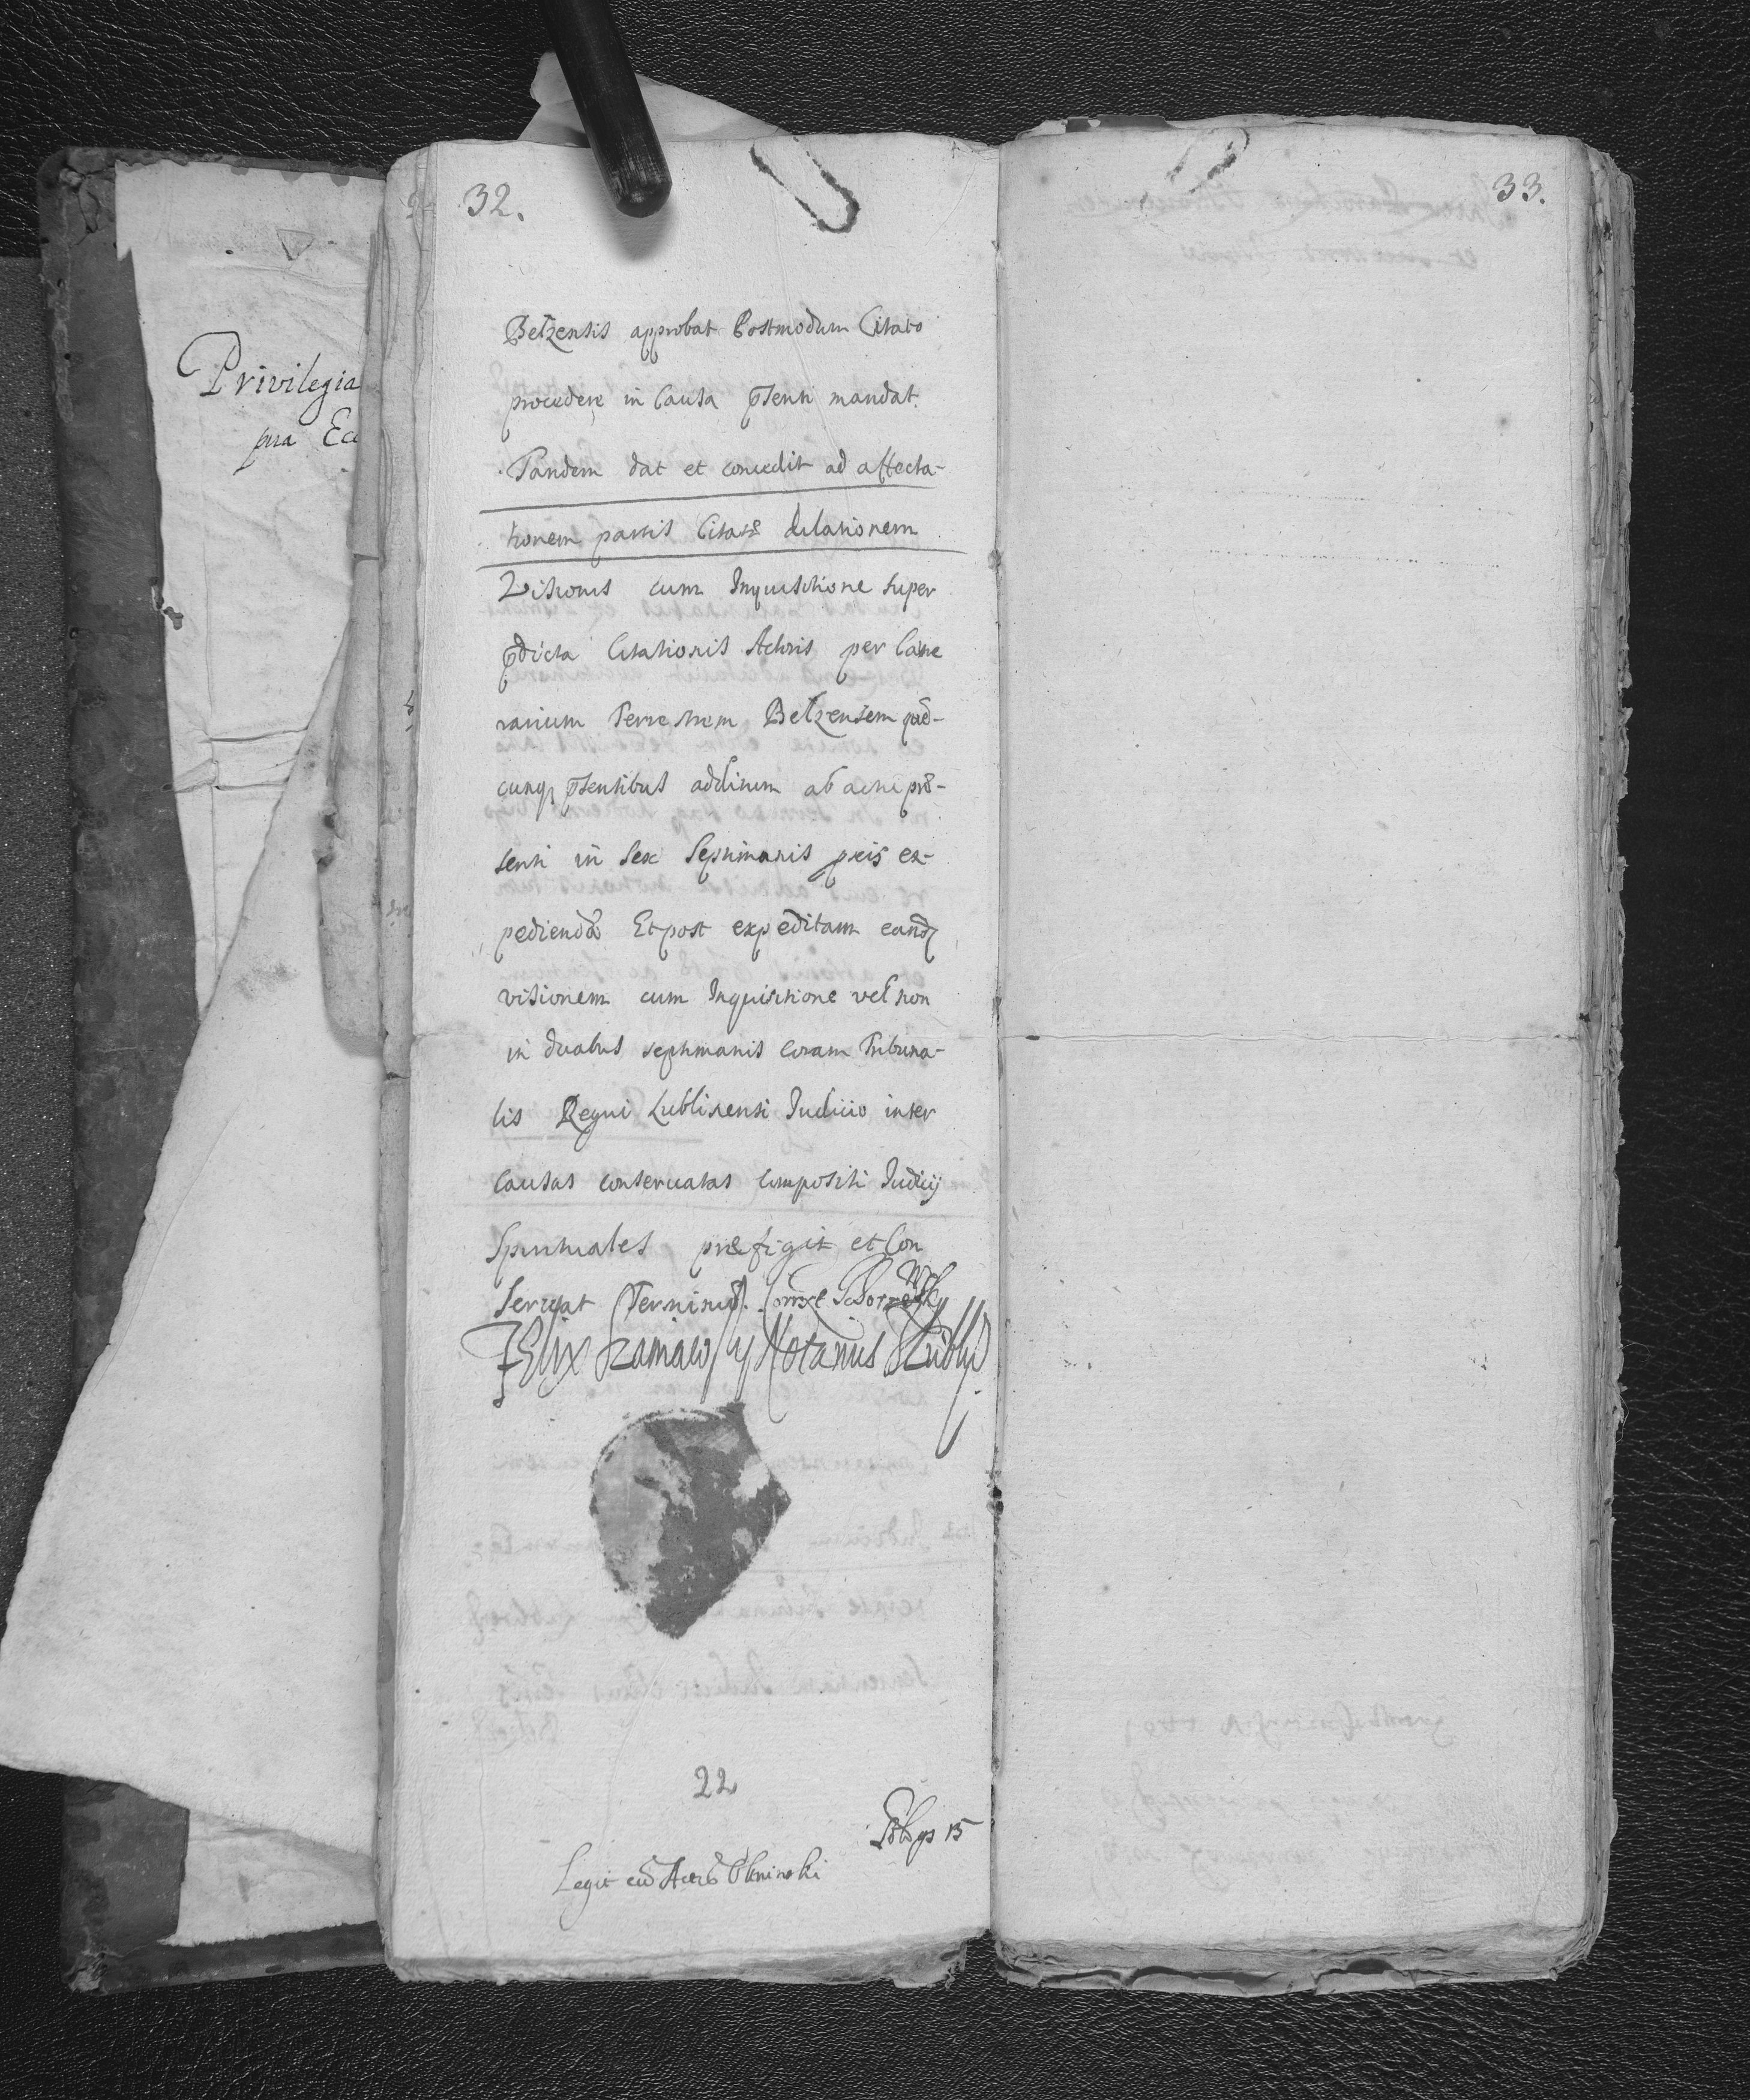 Privilegia
pra Ecc
32.
Betzensis approbat Postmodum Citato
procedere in Causa p̄senti mandat.
Tandem dat et concedit ad affecta-
tionem partis Citatę dilationem
Visionis cum Inquisitione super
p̄dicta Citationis Actoris per Came
rarium Terrestrem Betzensem quē-
cunq̨ p̄sentibus additum ab actu prę-
senti in sex Septimanis pcis ex-
pediendā Et post expeditam eand̄
visionem cum Inquisitione vel non
in duabus septimanis coram Tribuna-
lis Regni Lublinensi Iudicio inter
causas conservatas compositi Iudicij
Spirituales præfigit et Con
servat Terminū.
Felix Notarius
22
15
Legit cū Actis
33.